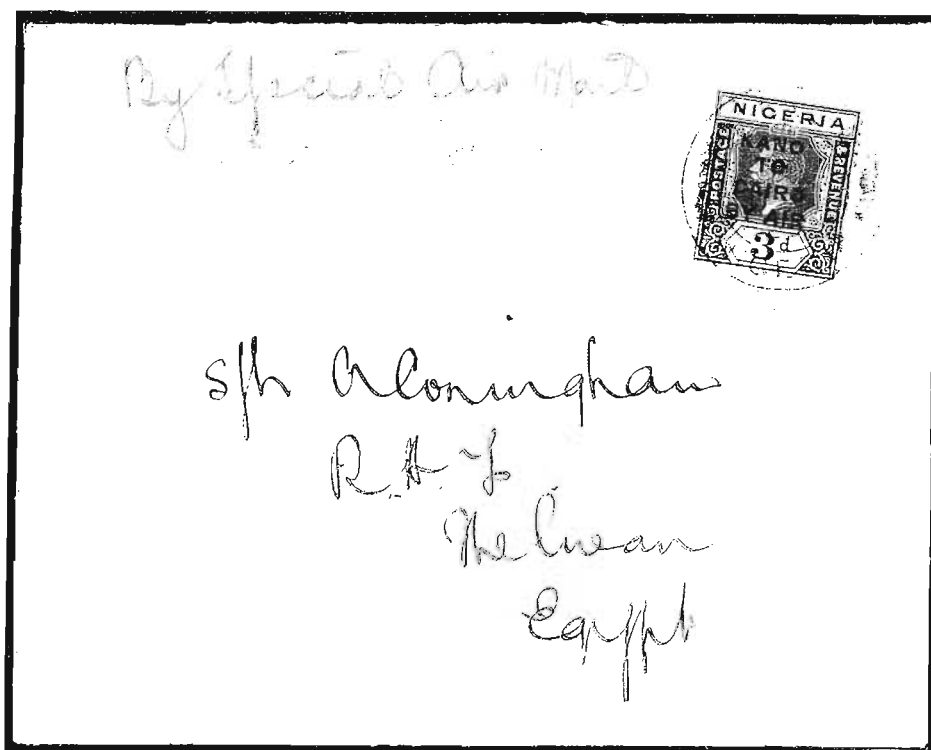 By Special Air Mail
NIGERIA
POSTAGE & REVENUE
KANO
TO
CAIRO
AIR
3d
A Coningham
R.A.F
Egypt